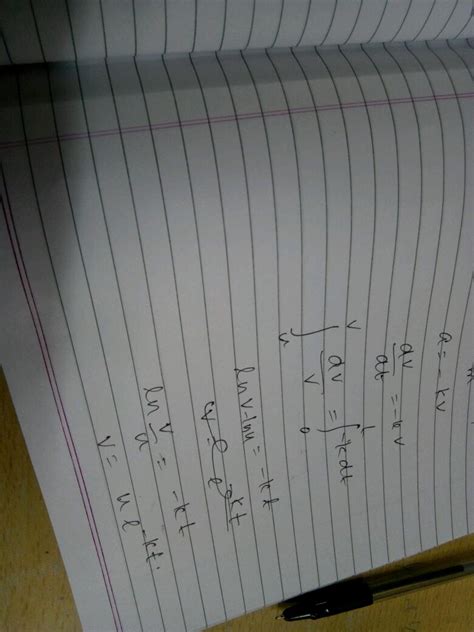 a = -kv
dv/dt = -kv
∫_u^v dv/v = ∫_0^t -k dt
ln v - ln u = -kt
ln v/u = -kt
v = u e^-kt